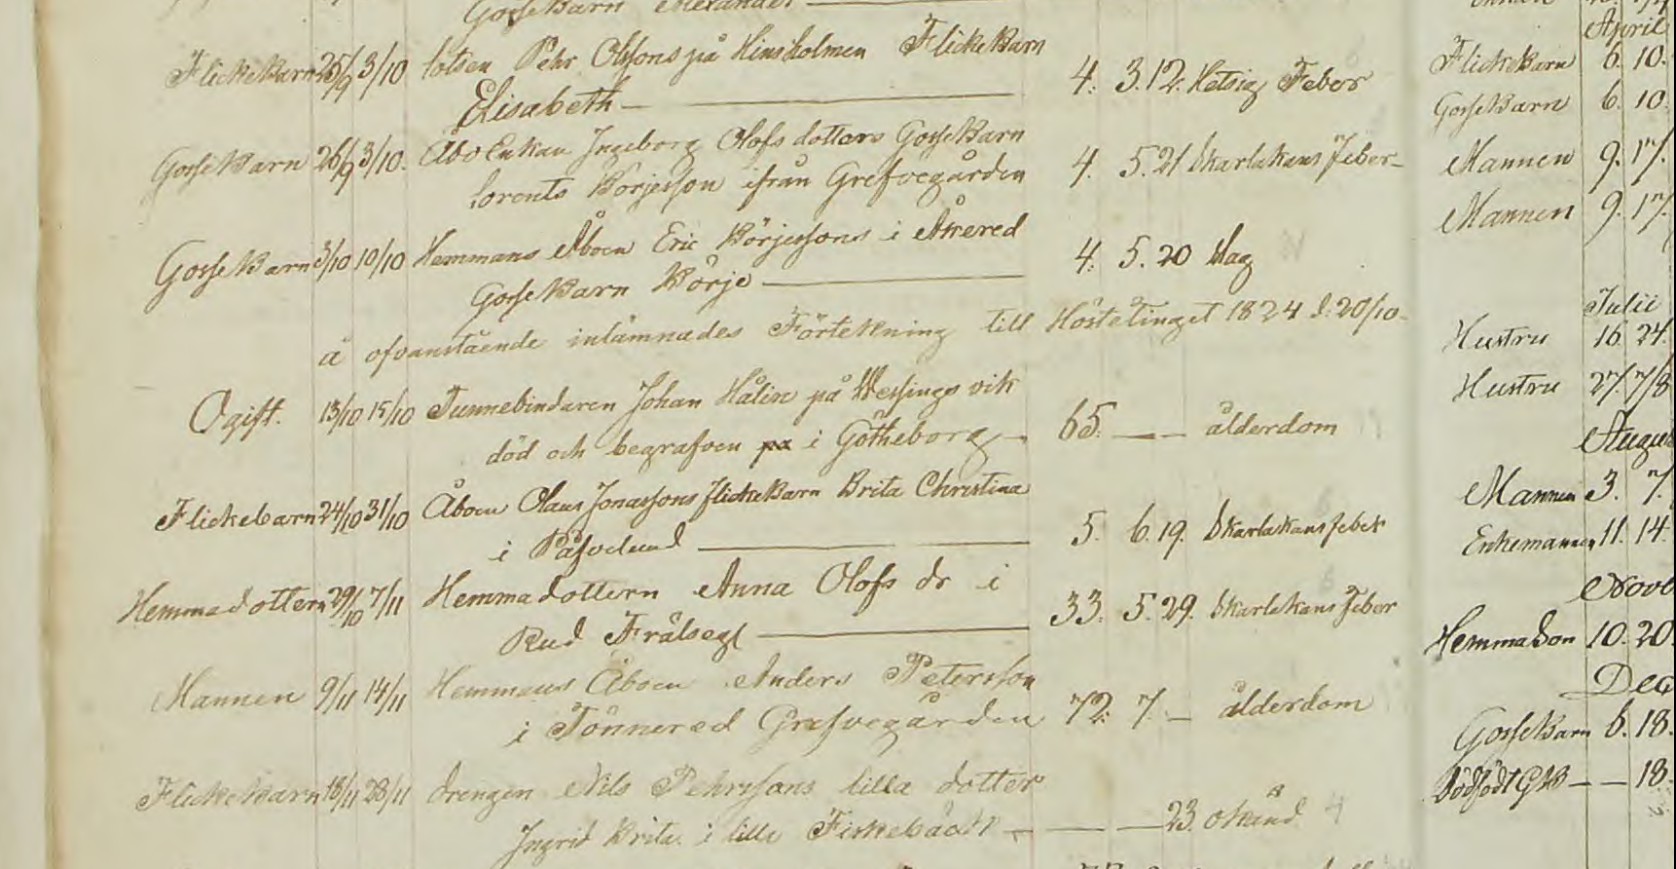 GosseBarn Alexander
FlickeBarn 26/9 3/10 lotsen Pehr Olssons på Hinsholmen FlickeBarn
Elisabeth 4. 3. 12. Hetsig Feber
GosseBarn 26/9 3/10. Åbo Enkan Ingeborg Olofs dotters GosseBarn
Lorents Börjesson ifrån Grefvegården 4. 5. 21 Skarlakans feber
GosseBarn 3/10 10/10 Hemmans Åboen Eric Börjessons i Åkered
GosseBarn Börje 4. 5. 20 Slag
å ofvanstående inlämnades Förtekning till Höstetinget 1824 d. 20/10
Ogift. 13/10 15/10 Tunnebindaren Johan Hålin på Wessingsvik
död och begrafven på i Götheborg 65. ålderdom
Flickebarn 24/10 31/10 Åboen Olaus Jonassons flickeBarn Brita Christina
i Påfvelund 5. 6. 19. Skarlakansfeber
Hemmadottern 29/10 7/11 Hemmadottern Anna Olofs dr i
Rud Frälsegl 33. 5. 29. Skarlakans Feber
Mannen 9/11 14/11 Hemmans Åboen Anders Petersson
i Tönnered Grefvegården 72. 7. ålderdom
FlickeBarn 18/11 28/11 drengen Nils Pehrssons lilla dotter
Ingrid Brita i lilla Fiskebäck 23. okänd
April
FlickeBarn 6. 10.
GosseBarn 6. 10
Mannen 9. 17.
Mannen 9. 17.
Julii
Hustru 16. 24.
Hustru 27. 7/8
Mannen 3. 7.
Enkemannen 11. 14.
HemmaSon 10. 20
Dec
GosseBarn 6. 18.
Dödfödt GB 18.